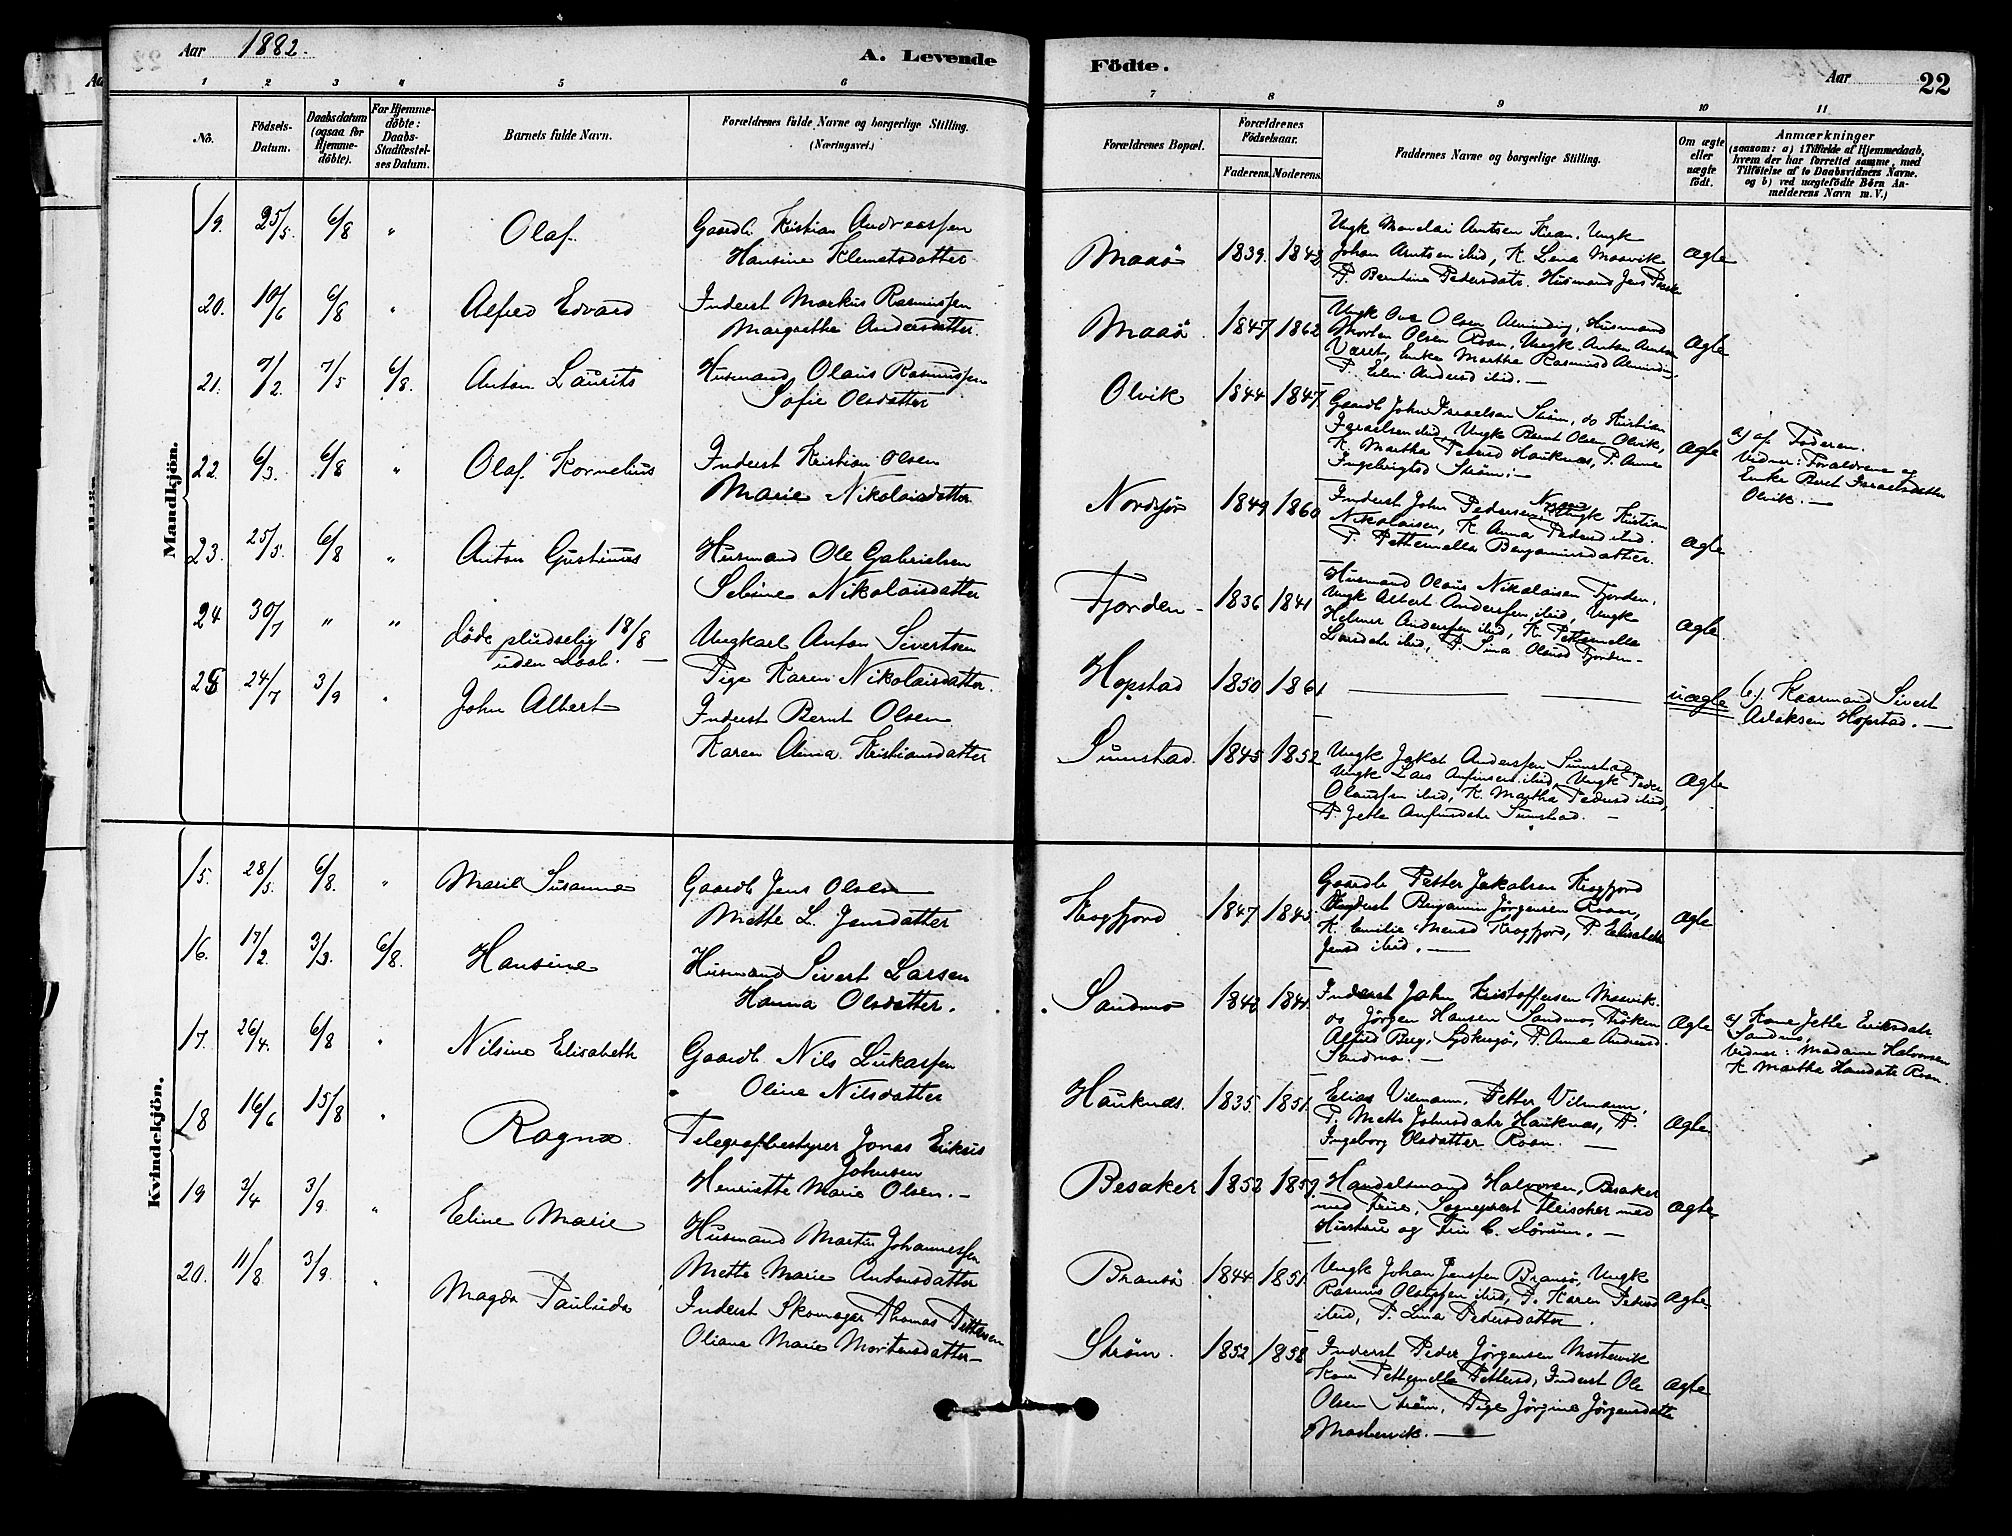 Aar 1882. A. Levende Födte. Aar 22
1 2 3 4 5 6 7 8 9 10 11
No. Födsels-Datum. Daabsdatum (ogsaa for Hjemmedöbte). For Hjemmedöbte: Daabs-Stadfæstelses Datum. Barnets fulde Navn. Forældrenes fulde Navne og borgerlige Stilling. (Næringsvei.) Forældrenes Bopæl. Forældrenes Födselsaar. Faderens. Moderens. Faddernes Navne og borgerlige Stilling. Om ægte eller uægte födt. Anmærkninger (saasom: a) i Tilfælde af Hjemmedaab, hvem der har forrettet samme, med Tilföielse af to Daabsvidners Navne. og b) ved uægtefödte Börn Anmelderens Navn m. V.)
Mandkjön.
19. 25/5. 6/8 " Olaf. Gaardb. Kristian Andreassen
Hansine Klemetsdatter
Maaö 1839. 1848 Ungk Mandai Arntsen Kiran, Ungk
Johan Arntsen ibid, K. Lena Moavik
P. Berntine Pedersdatr. Husmand Jens
Ægte
20. 10/6 6/8 " Alfred Edvard Inderst Markus Rasmussen
Margrethe Andersdatter.
Maaö. 1847 1862 Ungk Ove Olsen Almindig, Husmand
Morten Olsen Roan, Ungk Anton
Været, Enke Martha Rasmusd Alminding,
P. Elen Andersd ibid. —
Ægte
21. 7/2. 7/5 6/8. Anton Laurits Husmand Olaus Rasmussen
Sofie Olsdatter
Olvik 1844 1847. Gaardb John Israelsen Strøm, do Kristian
Israelsen ibid, Ungk Bernt Olsen Olvik,
K. Martha Pedersd Hauknes, P. Anne
Ingebrigtsd Strøm. —
Ægte
a) af Faderen.
Vidner: Forældrene og
Enke Beret Israelsdatter
Olvik. —
22. 6/3. 6/8 " Olaf Kornelius Inderst Kristian Olsen
Marie Nikolaisdatter
Nordsjør 1849 1860 Inderst John Pedersen Ungk Kristian
Nikolaisen, K. Anna Pedersd ibid.
P. Petternella Benjaminsdatter.
Ægte
23. 25/5. 6/8 " Anton Gustinus Husmand Ole Gabrielsen
Sebine Nikolaisdatter
Fjorden 1836 1841 Husmand Olaus Nikolaisen Fjorden,
Ungk Albert Anderssen ibid, Ungk
Helmer Anderssen ibid, K. Petternella
Larsdatr ibid, P. Sina Olausd Fjorden—
Ægte.
24 30/7 " " döde pludselig 18/8
uden daab. —
Ungkarl Anton Sivertsen
Pige Karen Nikolaisdatter.
Hopstad 1850 1861 — uægte b). Kaarmand Sivert
Aslaksen Hopstad. —
25 24/7 3/9 " John Albert Inderst Bernt Olsen
Karen Anna Kristiansdatter
Sumstad. 1845 1852 Ungk Jakob Anderssen Sumstad
Ungk Lars Anfinsen ibid, Ungk Peder
Olaussen ibid, K. Martha Pedersd ibid,
P. Jette Anfinsdatr Sumstad. —
Ægte
Kvindekjön.
15. 28/5. 6/8. " Marie Susanna Gaardb Jens Olsen
Mette L. Jensdatter
Krogfjord 1847 1845. Gaardb Petter Jakobsen Krogfjord
Inderst Benjamin Jörgensen Roan,
K. Emilie Mensd Krogfjord, P. Elisabeth
Jensd ibid. —
Ægte
16. 17/2. 3/3. 6/8. Hansine Husmand Sivert Larsen
Hanna Olsdatter.
Sandmo 1848 1841. Inderst John Kristoffersen Moavik.
do Jörgen Hansen Sandmo, Fröken
Alfild Berg, P. Anne Andersd.
Sandmo. —
Ægte
a) Kone Jette Eriksdatr
Sandmo.
Vidner: Madame Halvorsen
K. Martha Hansdatr Roan.
17. 26/4. 6/8 " Nilsine Elisabeth Gaardb Nils Lukassen
Oline Nilsdatter
Hauknes. 1835 1851. Elias Vilmann, Petter Vilmann,
P. Mette Johnsdatr Hauknes, P.
Ingeborg Olsdatter Roan. —
Ægte
18 16/6 15/8 " Ragna Telegrafbestyrer Jonas Eriksis
Johnsen
Henriette Marie Olsen. —
Besaker 1853 1859. Handelsmand Halvorsen, Besaker
med Frue, Sogneprest Fleischer med
Hustru og Fru C. Lörum. —
Ægte
19 3/4 3/9. " Eline Marie Husmand Martin Johannessen
Mette Marie Antonsdatter
Bransö. 1844 1851. Ungk Johan Jenssen Bransö, Ungk
Rasmus Olaussen ibid, P. Karen Pedersd
ibid, P. Lina Pedersdatter.
Ægte
20. 11/8 3/9. " Magda Paulinda Inderst Skomager Thomas Pettersen
Oliana Marie Mortensdatter—
Strøm. 1852 1858 Inderst Peder Jörgensen Mostervik
Kone Petternella Pettersd, Inderst Ole
Olsen Strøm, Pige Jörgine Jörgensdatr
Mostervik. —
Ægte